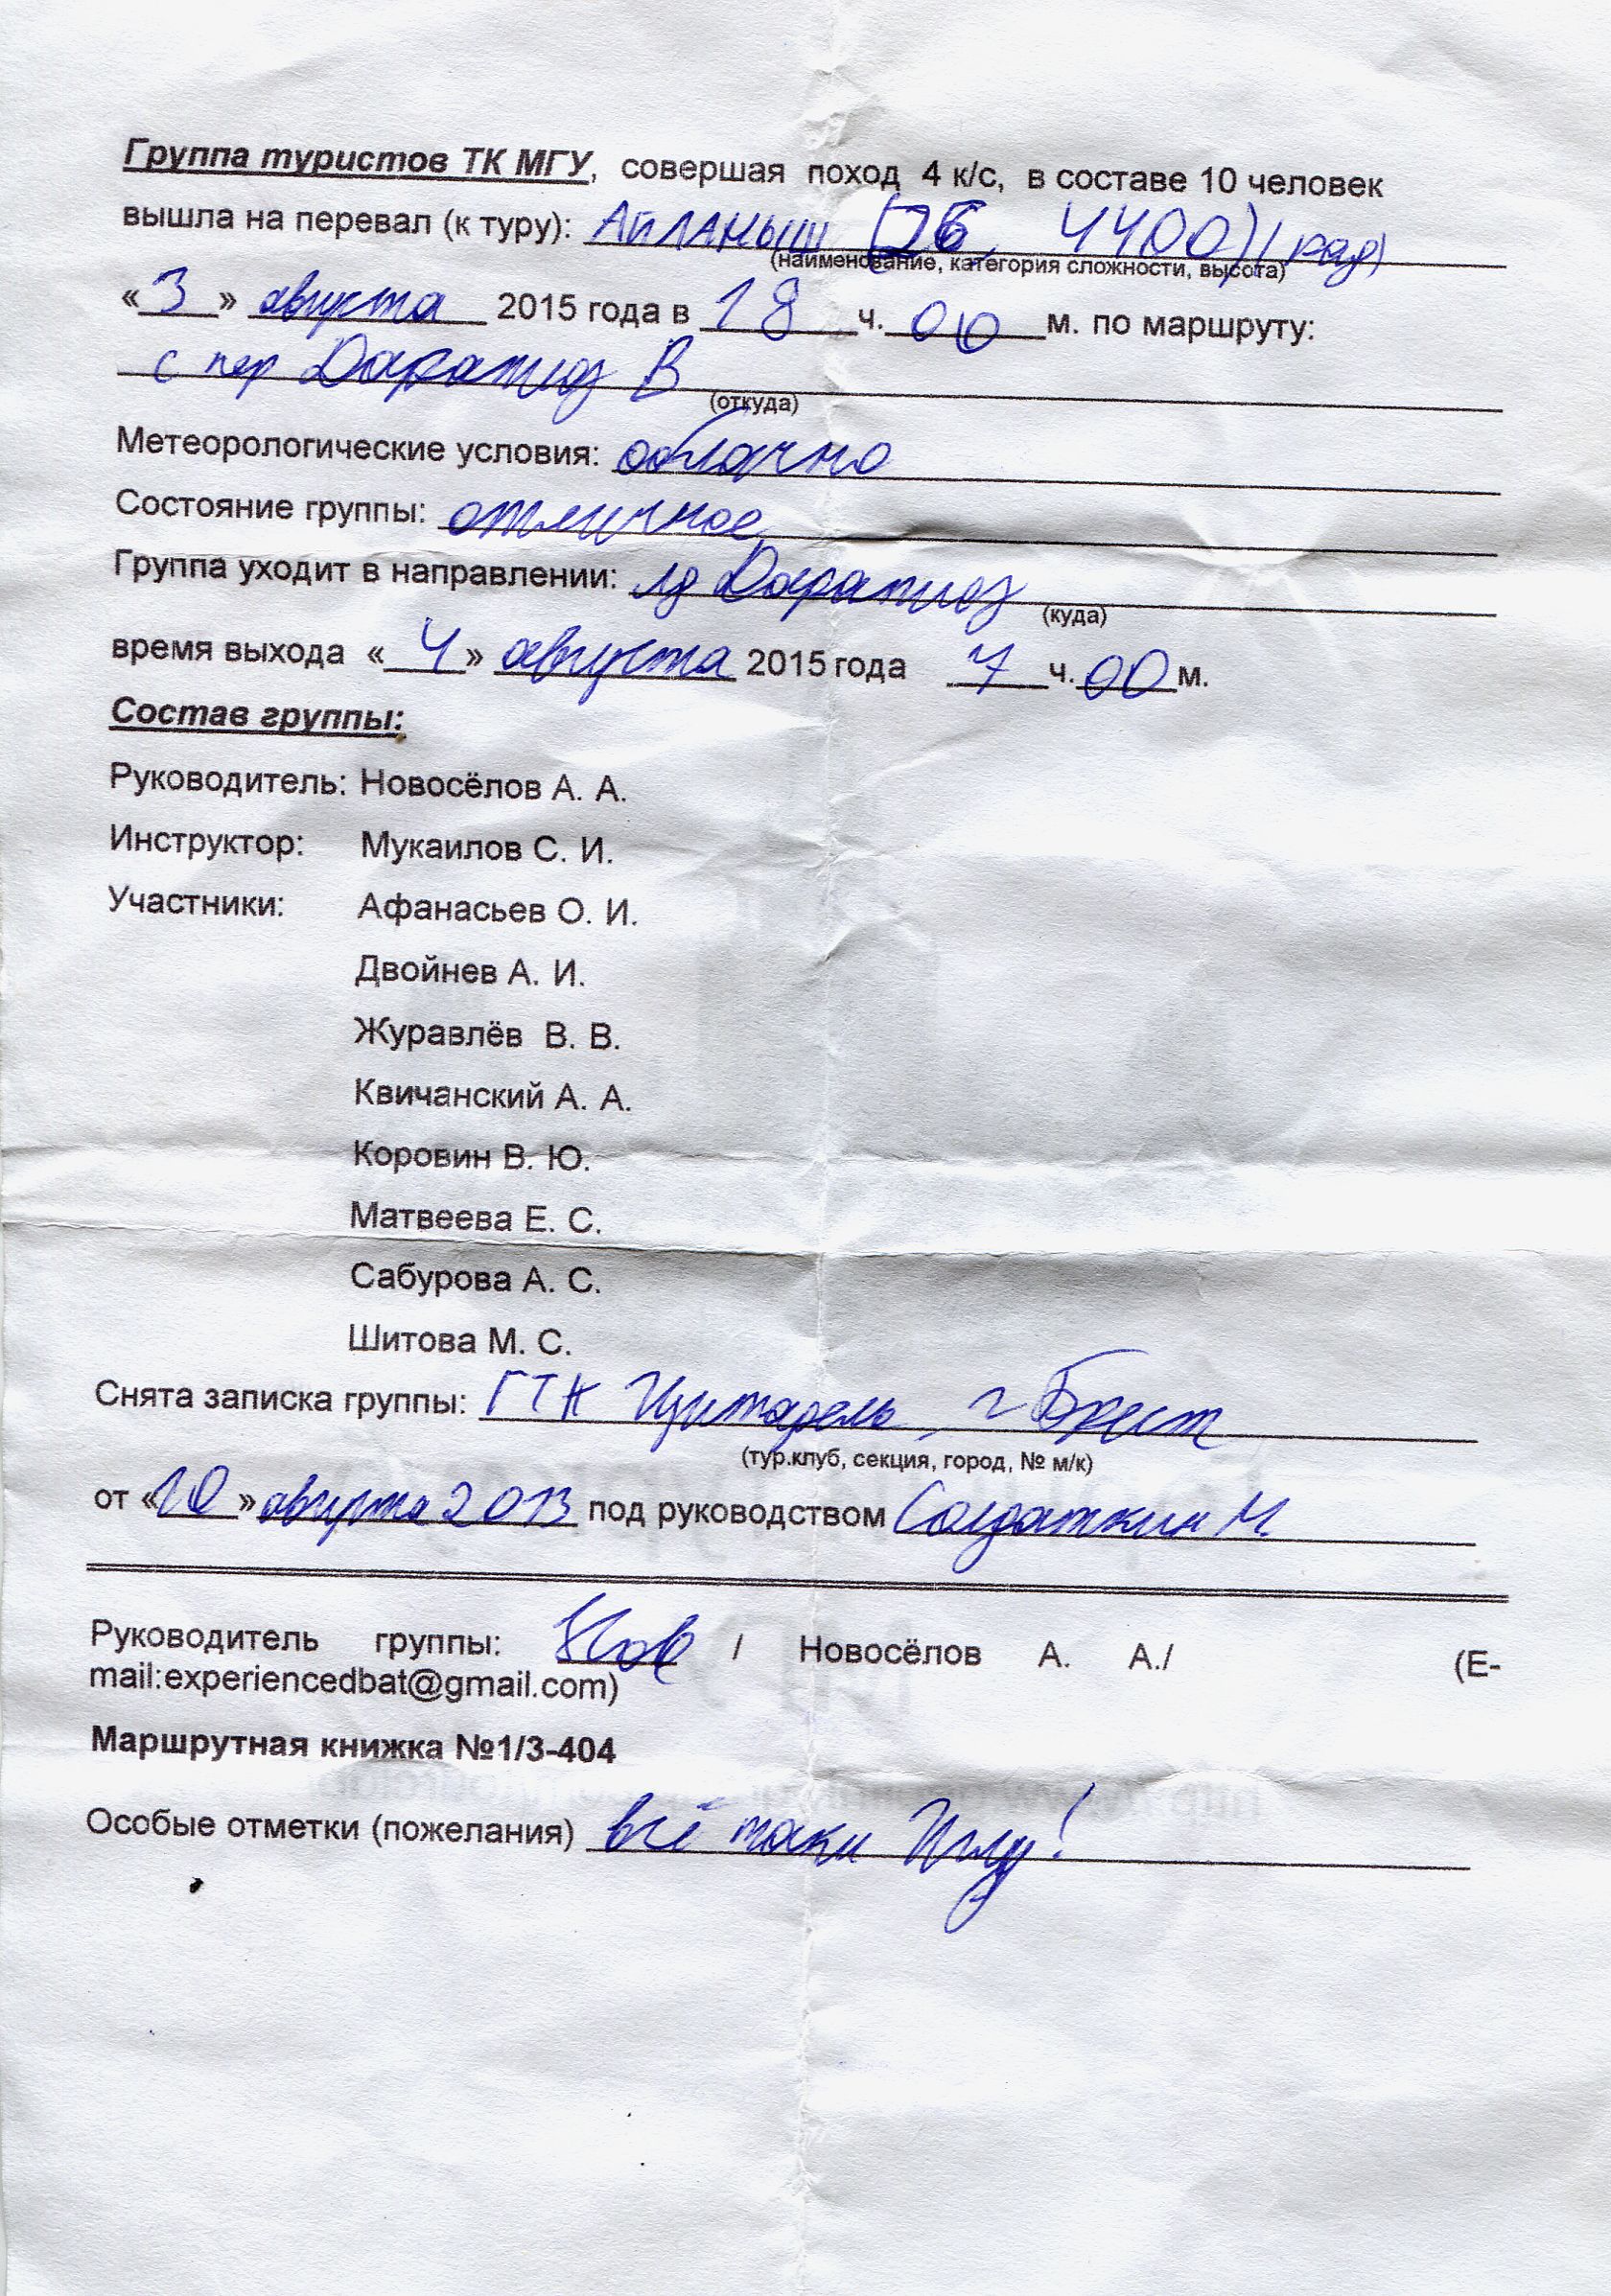 Группа туристов ТК МГУ, совершая поход 4 к/с, в составе 10 человек
вышла на перевал (к туру): АЙЛАНЫШ (2Б, 4400) (рад)
(наименование, категория сложности, высота)
«3» августа 2015 года в 18 ч. 00 м. по маршруту:
с пер Даратиоз В
(откуда)
Метеорологические условия: облачно
Состояние группы: отличное
Группа уходит в направлении: лд Даратиоз
(куда)
время выхода «4» августа 2015 года 7 ч. 00 м.
Состав группы:
Руководитель: Новосёлов А. А.
Инструктор: Мукаилов С. И.
Участники: Афанасьев О. И.
Двойнев А. И.
Журавлёв В. В.
Квичанский А. А.
Коровин В. Ю.
Матвеева Е. С.
Сабурова А. С.
Шитова М. С.
Снята записка группы: ГТК Цитадель, г Брест
(тур.клуб, секция, город, № м/к)
от «10» августа 2013 под руководством Солдаткин М.
Руководитель группы: / Новосёлов А. А./ (E-
mail:experiencedbat@gmail.com)
Маршрутная книжка №1/3-404
Особые отметки (пожелания) всё таки Иглу!